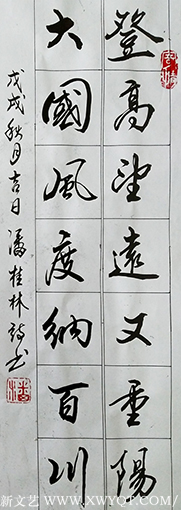 登高望遠又重陽
大國風度納百川
戊戌秋月吉日潘桂林詩书
新文艺 www.XWYQF.COM